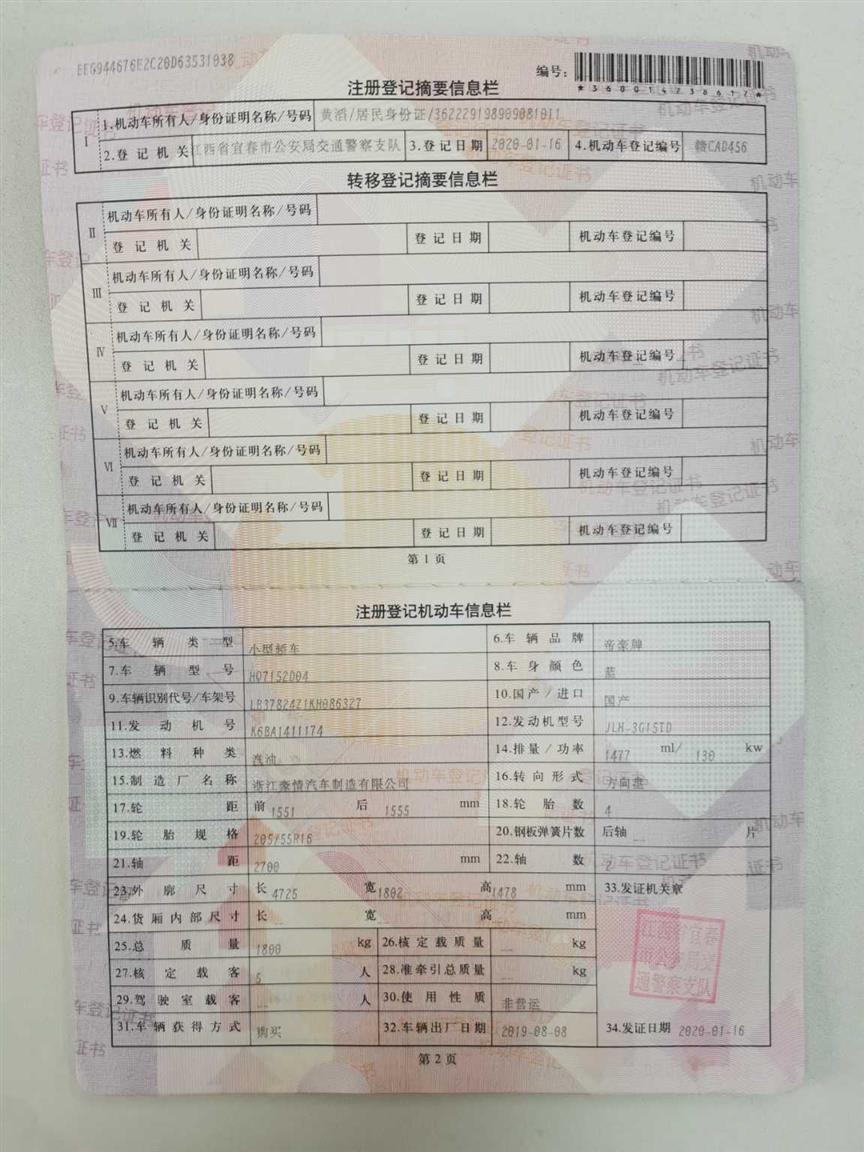 EEG944676E2C20D63531038
编号：
*360014238617*
注册登记摘要信息栏
I
1.机动车所有人/身份证明名称/号码 黄滔/居民身份证/362229198909081011
2.登记机关 江西省宜春市公安局交通警察支队 3.登记日期 2020-01-16 4.机动车登记编号 赣CAD456
转移登记摘要信息栏
II
机动车所有人/身份证明名称/号码
登记机关 登记日期 机动车登记编号
III
机动车所有人/身份证明名称/号码
登记机关 登记日期 机动车登记编号
IV
机动车所有人/身份证明名称/号码
登记机关 登记日期 机动车登记编号
V
机动车所有人/身份证明名称/号码
登记机关 登记日期 机动车登记编号
VI
机动车所有人/身份证明名称/号码
登记机关 登记日期 机动车登记编号
VII
机动车所有人/身份证明名称/号码
登记机关 登记日期 机动车登记编号
第1页
注册登记机动车信息栏
5.车辆类型 小型轿车 6.车辆品牌 帝豪牌
7.车辆型号 HQ7152D04 8.车身颜色 蓝
9.车辆识别代号/车架号 LB37824Z1KH086327 10.国产/进口 国产
11.发动机号 K6BA1411174 12.发动机型号 JLH-3G15TD
13.燃料种类 汽油 14.排量/功率 1477 ml/ 130 kw
15.制造厂名称 浙江豪情汽车制造有限公司 16.转向形式 方向盘
17.轮距 前 1551 后 1555 mm 18.轮胎数 4
19.轮胎规格 205/55R16 20.钢板弹簧片数 后轴 -- 片
21.轴距 2700 mm 22.轴数 2
23.外廓尺寸 长 4725 宽 1802 高 1478 mm 33.发证机关章
24.货厢内部尺寸 长 -- 宽 -- 高 -- mm
25.总质量 1800 kg 26.核定载质量 -- kg
27.核定载客 5 人 28.准牵引总质量 -- kg
江西省宜春
市公安局交
通警察支队
29.驾驶室载客 -- 人 30.使用性质 非营运
31.车辆获得方式 购买 32.车辆出厂日期 2019-08-08 34.发证日期 2020-01-16
第2页